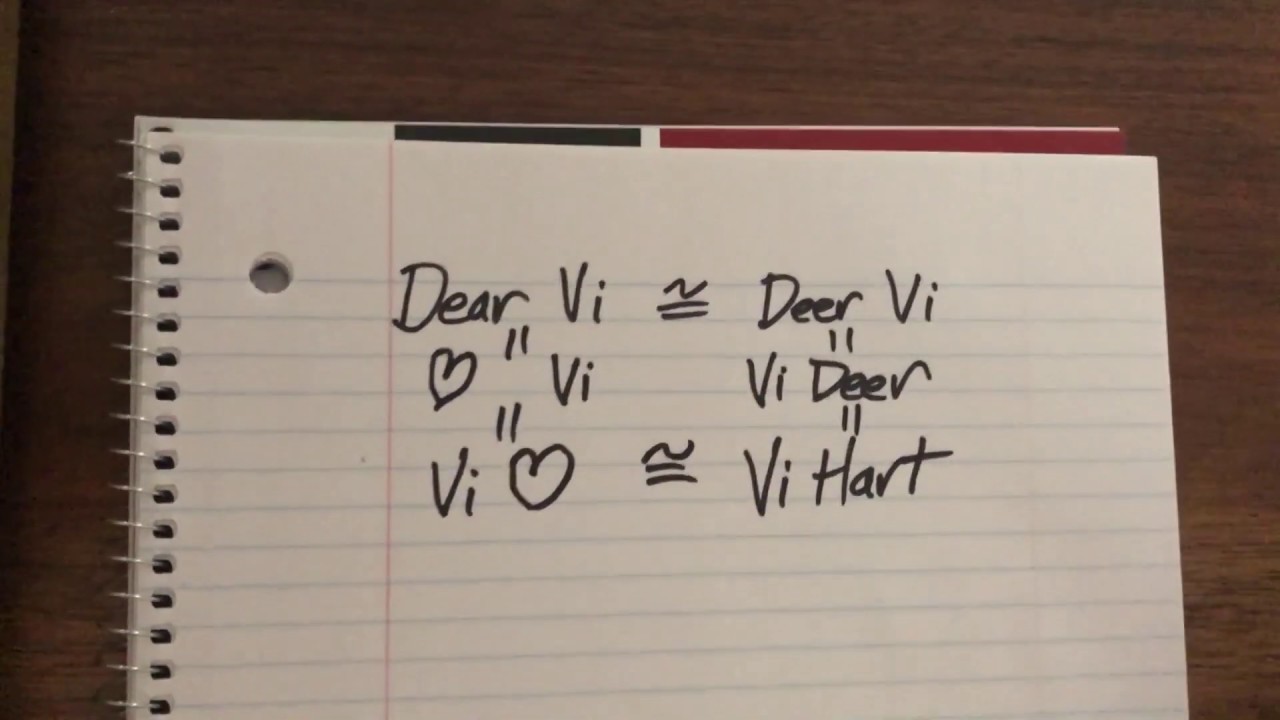 Dear Vi ≅ Deer Vi
= =
♡ Vi Vi Deer
= =
Vi ♡ ≅ Vi Hart